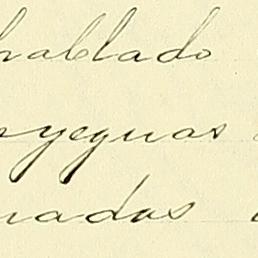 hablado
yeguas
nadas